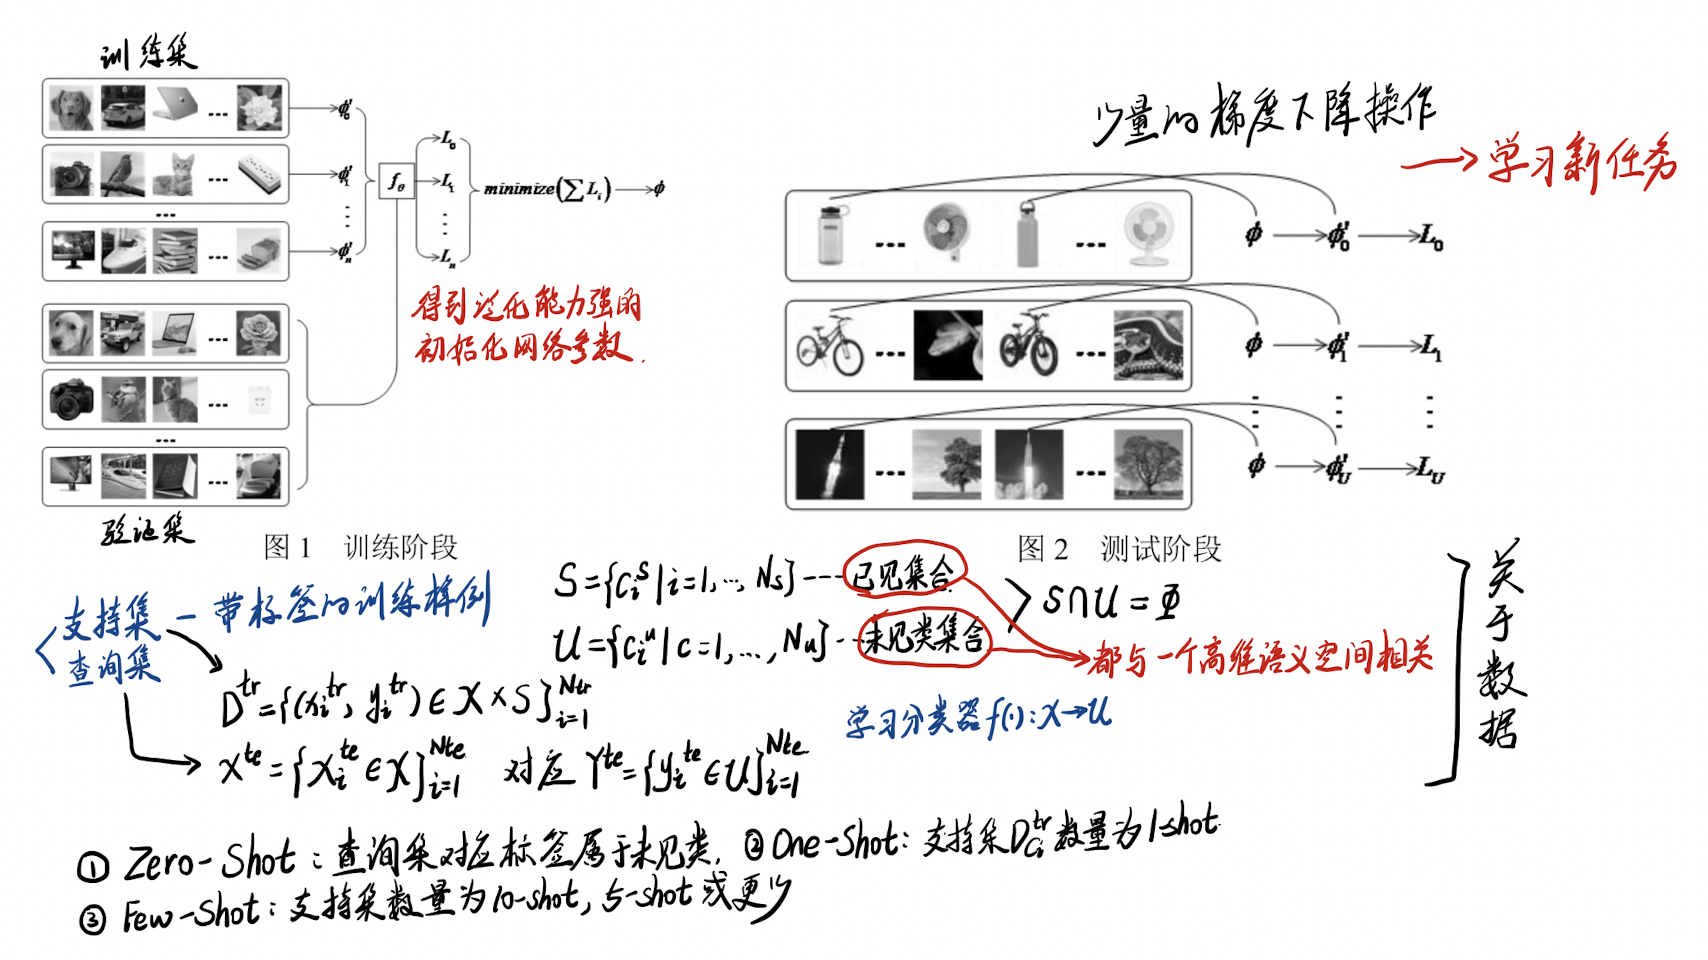 训练集
ϕ'₀
L₀
ϕ'₁
f_θ
L₁
minimize(∑Lᵢ)
ϕ
...
ϕ'ₙ
Lₙ
得到泛化能力强的
初始化网络参数.
验证集
图 1 训练阶段
少量的梯度下降操作
→学习新任务
ϕ → ϕ'₀ → L₀
ϕ → ϕ'₁ → L₁
ϕ → ϕ'_U → L_U
图 2 测试阶段
支持集 — 带标签的训练样例
查询集
S={cᵢˢ|i=1,…,Ns}---已见集合
U={cᵢᵘ|c=1,…,Nu}--未见类集合
S∩U=Φ
都与一个高维语义空间相关
学习分类器f(·):X→U
关于数据
D^tr={(xᵢ^tr, yᵢ^tr)∈X×S}_{i=1}^{Ntr}
X^te={Xᵢ^te∈X}_{i=1}^{Nte} 对应Y^te={yᵢ^te∈U}_{i=1}^{Nte}
① Zero-Shot:查询集对应标签属于未见类. ② One-Shot:支持集D_{ci}^tr数量为1-shot
③ Few-Shot:支持集数量为10-shot, 5-shot或更少